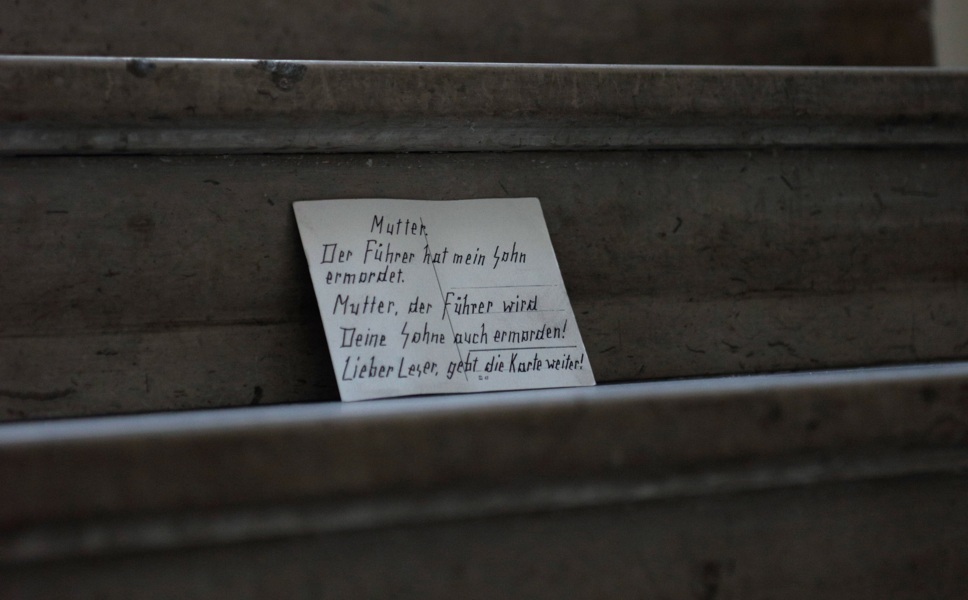 Mutter
Der Führer hat mein Sohn
ermordet.
Mutter, der Führer wird
Deine Sohne auch ermorden!
Lieber Leser, gebt die Karte weiter!